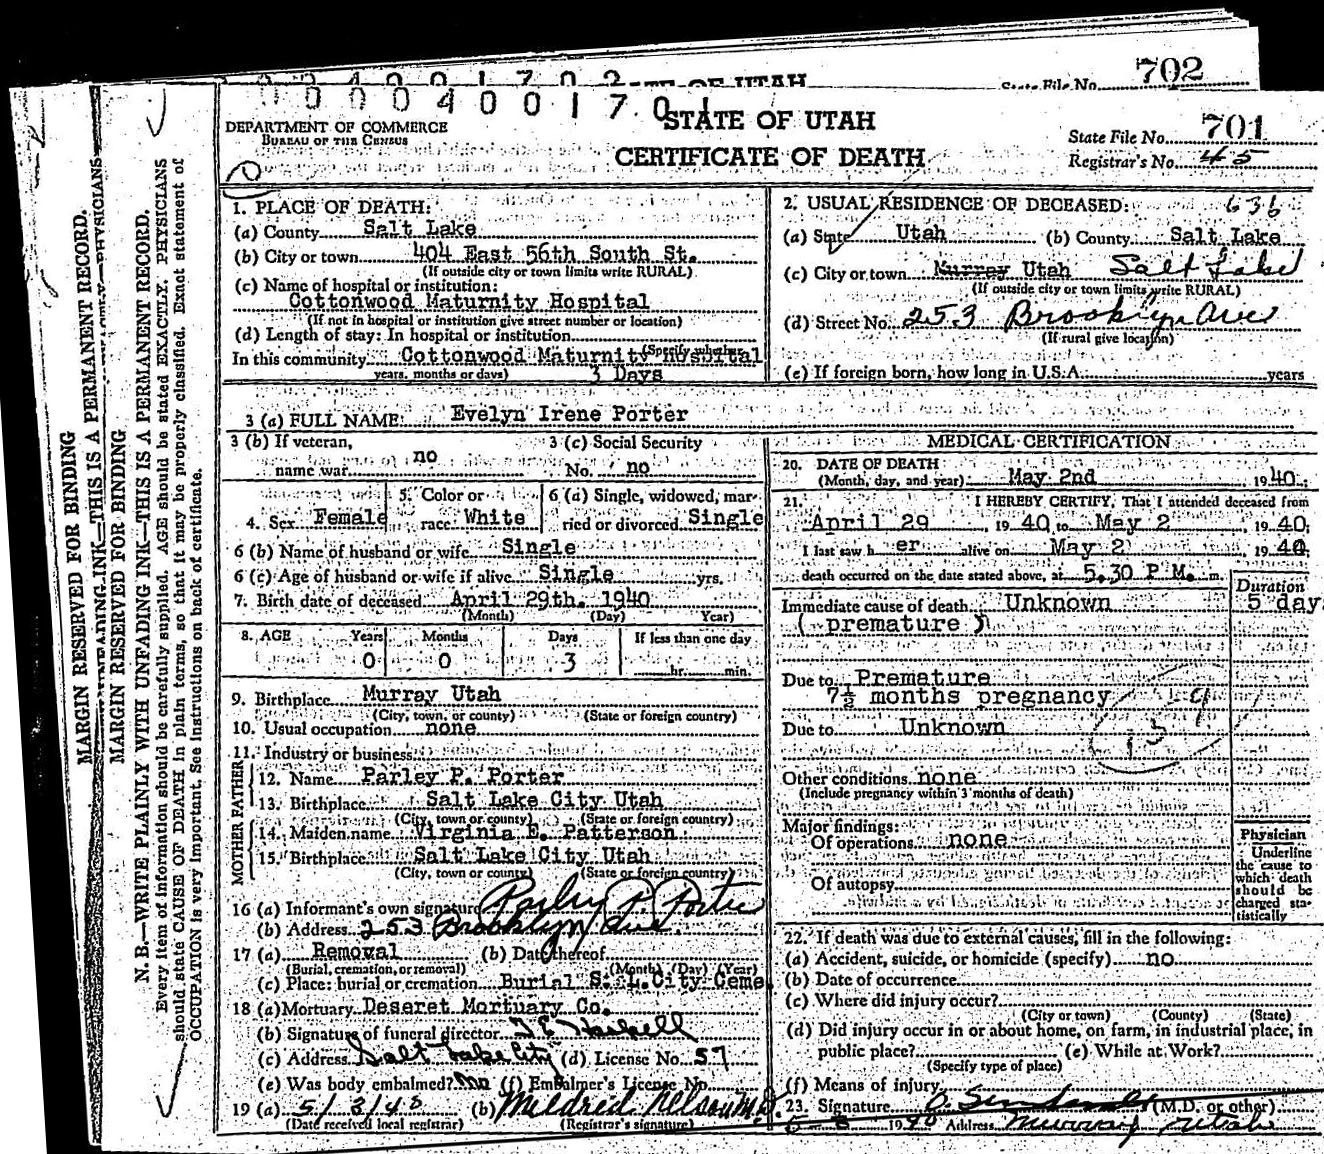 702
State File No.
0 0 0 4 0 0 1 7 0 1
STATE OF UTAH
CERTIFICATE OF DEATH
DEPARTMENT OF COMMERCE
BUREAU OF THE CENSUS
State File No. 701
Registrar's No. 45
MARGIN RESERVED FOR BINDING
MARGIN RESERVED FOR BINDING
N. B.—WRITE PLAINLY WITH UNFADING INK—THIS IS A PERMANENT RECORD.
Every item of information should be carefully supplied. AGE should be stated EXACTLY. PHYSICIANS
should state CAUSE OF DEATH in plain terms, so that it may be properly classified. Exact statement of
OCCUPATION is very important. See instructions on back of certificate.
1. PLACE OF DEATH:
(a) County Salt Lake
(b) City or town 404 East 56th South St.
(If outside city or town limits write RURAL)
(c) Name of hospital or institution:
Cottonwood Maternity Hospital
(If not in hospital or institution give street number or location)
(d) Length of stay: In hospital or institution
(Specify whether
In this community Cottonwood Maturnity Hospital
years, months or days) 3 Days
2. USUAL RESIDENCE OF DECEASED: 636
(a) State Utah (b) County Salt Lake
(c) City or town Murray Utah Salt Lake
(If outside city or town limits write RURAL)
(d) Street No. 253 Brooklyn Ave
(If rural give location)
(e) If foreign born, how long in U.S.A. years
3 (a) FULL NAME: Evelyn Irene Porter
3 (b) If veteran,
name war no
3 (c) Social Security
No. no
4. Sex Female
5. Color or
race White
6 (a) Single, widowed, mar-
ried or divorced Single
6 (b) Name of husband or wife Single
6 (c) Age of husband or wife if alive Single yrs.
7. Birth date of deceased April 29th. 1940
(Month) (Day) Year)
8. AGE Years Months Days If less than one day
0 0 3 hr. min.
9. Birthplace Murray Utah
(City, town, or county) (State or foreign country)
10. Usual occupation none
11. Industry or business
FATHER
12. Name Parley P. Porter
13. Birthplace Salt Lake City Utah
(City, town or county) (State or foreign country)
MOTHER
14. Maiden name Virginia E. Patterson
15. Birthplace Salt Lake City Utah
(City, town or county) (State or foreign country)
16 (a) Informant's own signature Parley P. Porter
(b) Address 253 Brooklyn Ave.
17 (a) Removal (b) Date thereof
(Burial, cremation, or removal) (Month) (Day) (Year)
(c) Place: burial or cremation Burial S. L. City Ceme
18 (a) Mortuary Deseret Mortuary Co.
(b) Signature of funeral director
(c) Address Salt Lake City (d) License No. 57
(e) Was body embalmed? no (f) Embalmer's License No.
19 (a) 5/3/40 (b) Mildred Nelson M.D.
(Date received local registrar) (Registrar's signature)
MEDICAL CERTIFICATION
20. DATE OF DEATH
(Month, day, and year) May 2nd 1940
21. I HEREBY CERTIFY, That I attended deceased from
April 29 1940 to May 2, 1940;
I last saw h er alive on May 2, 1940,
death occurred on the date stated above, at 5.30 P M. m.
Duration
Immediate cause of death Unknown 5 day
( premature )
Due to Premature
7½ months pregnancy
Due to Unknown
159
Other conditions none
(Include pregnancy within 3 months of death)
Major findings:
Of operations none
Of autopsy
Physician
Underline
the cause to
which death
should be
charged sta-
tistically
22. If death was due to external causes, fill in the following:
(a) Accident, suicide, or homicide (specify) no
(b) Date of occurrence
(c) Where did injury occur?
(City or town) (County) (State)
(d) Did injury occur in or about home, on farm, in industrial place, in
public place? (e) While at Work?
(Specify type of place)
(f) Means of injury
23. Signature (M.D. or other)
5-3 1940 Address Murray Utah